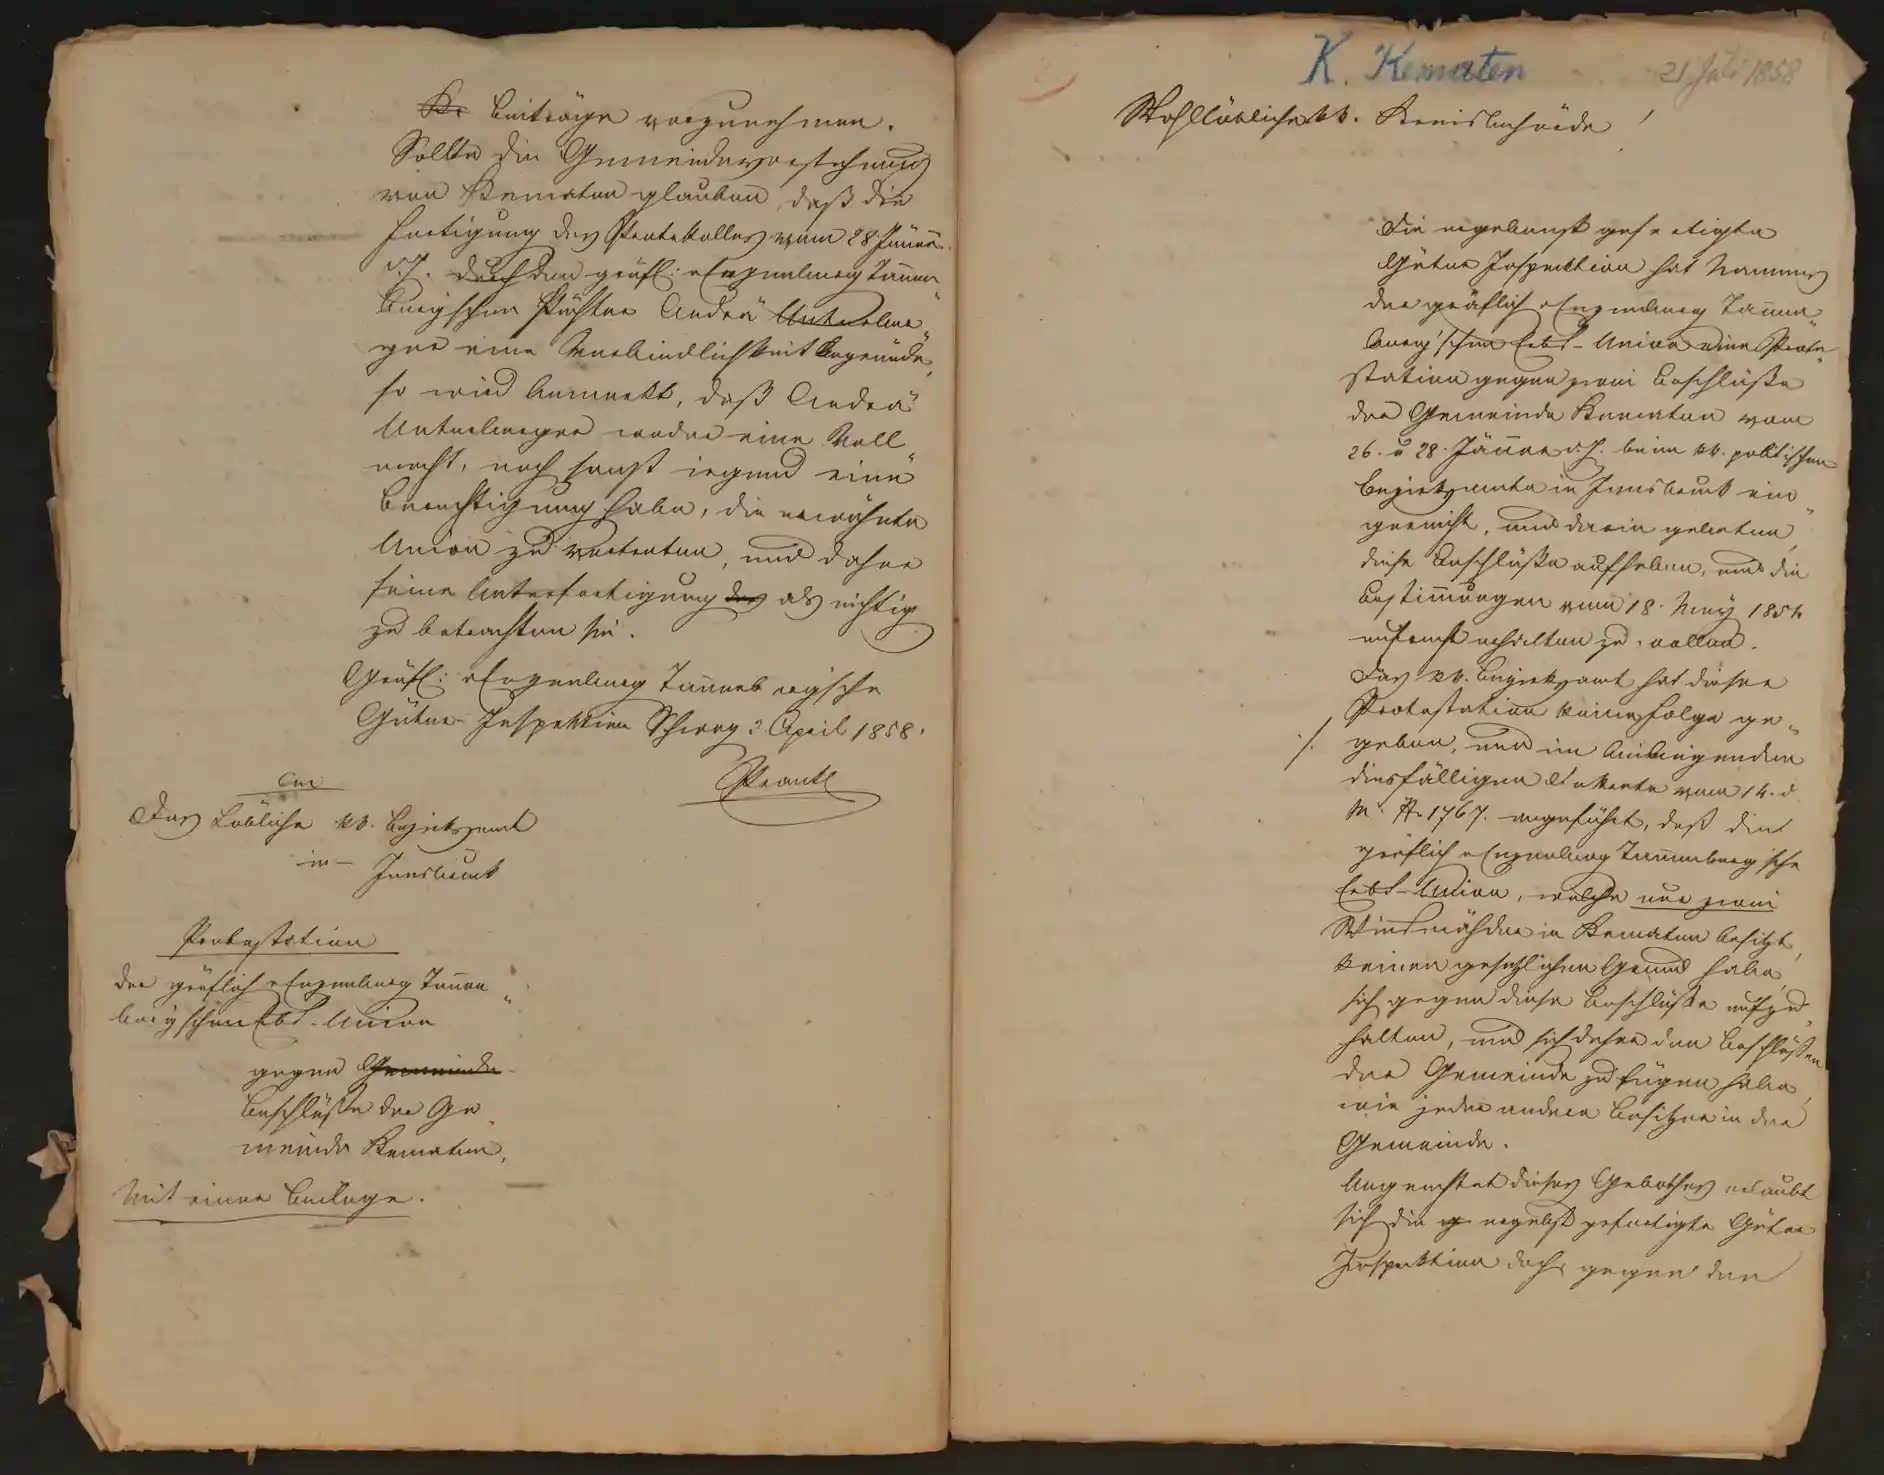 Beiträge vorzunehmen.
Sollte die Gemeindevorstehung
von Kematen glauben, daß die
Fertigung des Protokolles vom 28. Jänner
d. J. durch den gräfl: Enzenberg Tannen„
bergschen Pächter Andrä Unterber„
ger eine Verbindlichkeit begründe,
so wird bemerkt, daß Andrä
Unterberger weder eine Voll„
macht, noch sonst irgend eine
Berechtigung habe, die erwähnte
Union zu vertreten, und daher
seine Unterfertigung des als nichtig
zu betrachten sei.
Gräfl: Enzenberg Tannenbergische
Güter-Inspektion Schwaz 2 April 1858.
Prantl
An
Das Löbliche kk. Bezirksamt
in Innsbruck
Protestation
der gräflich Enzenberg Tannen„
bergschen Erbs-Union
gegen Gemeinde
Beschlüße der Ge„
meinde Kematen,
Mit einer Beilage.
K. Kematen
21 Juli 1858
Wohllöbliche kk. Kreisbehörde!
Die ergebenst gefertigte
Güter Inspektion hat Namens
der gräflich Enzenberg Tannen„
berg'schen Erbs-Union eine Prote„
station gegen zwei Beschlüße
der Gemeinde Kematen vom
26. u 28. Jänner d. J. beim kk. politischen
Bezirksamte in Innsbruck ein„
gereicht, und darin gebeten,
diese Beschlüße aufheben, und die
Bestimmungen vom 18. May 1854
aufrecht erhalten zu wollen.
Das kk. Bezirksamt hat dieser
Protestation keine Folge ge„
./. geben, und im anliegenden
diesfälligen Dekrete vom 14. d.
M. No 1767. angeführt, daß die
gräflich Enzenberg Tannenberg'sche
Erbs-Union, welche nur zwei
Wiesmähder in Kematen besitzt,
keinen gesetzlichen Grund habe,
sich gegen diese Beschlüße aufzu„
halten, und sich daher den Beschlüßen
der Gemeinde zu fügen habe,
wie jeder andere Besitzer in der
Gemeinde.
Ungeachtet dieses Gebothes erlaubt
sich die ergebst gefertigte Güter
Inspektion doch, gegen den